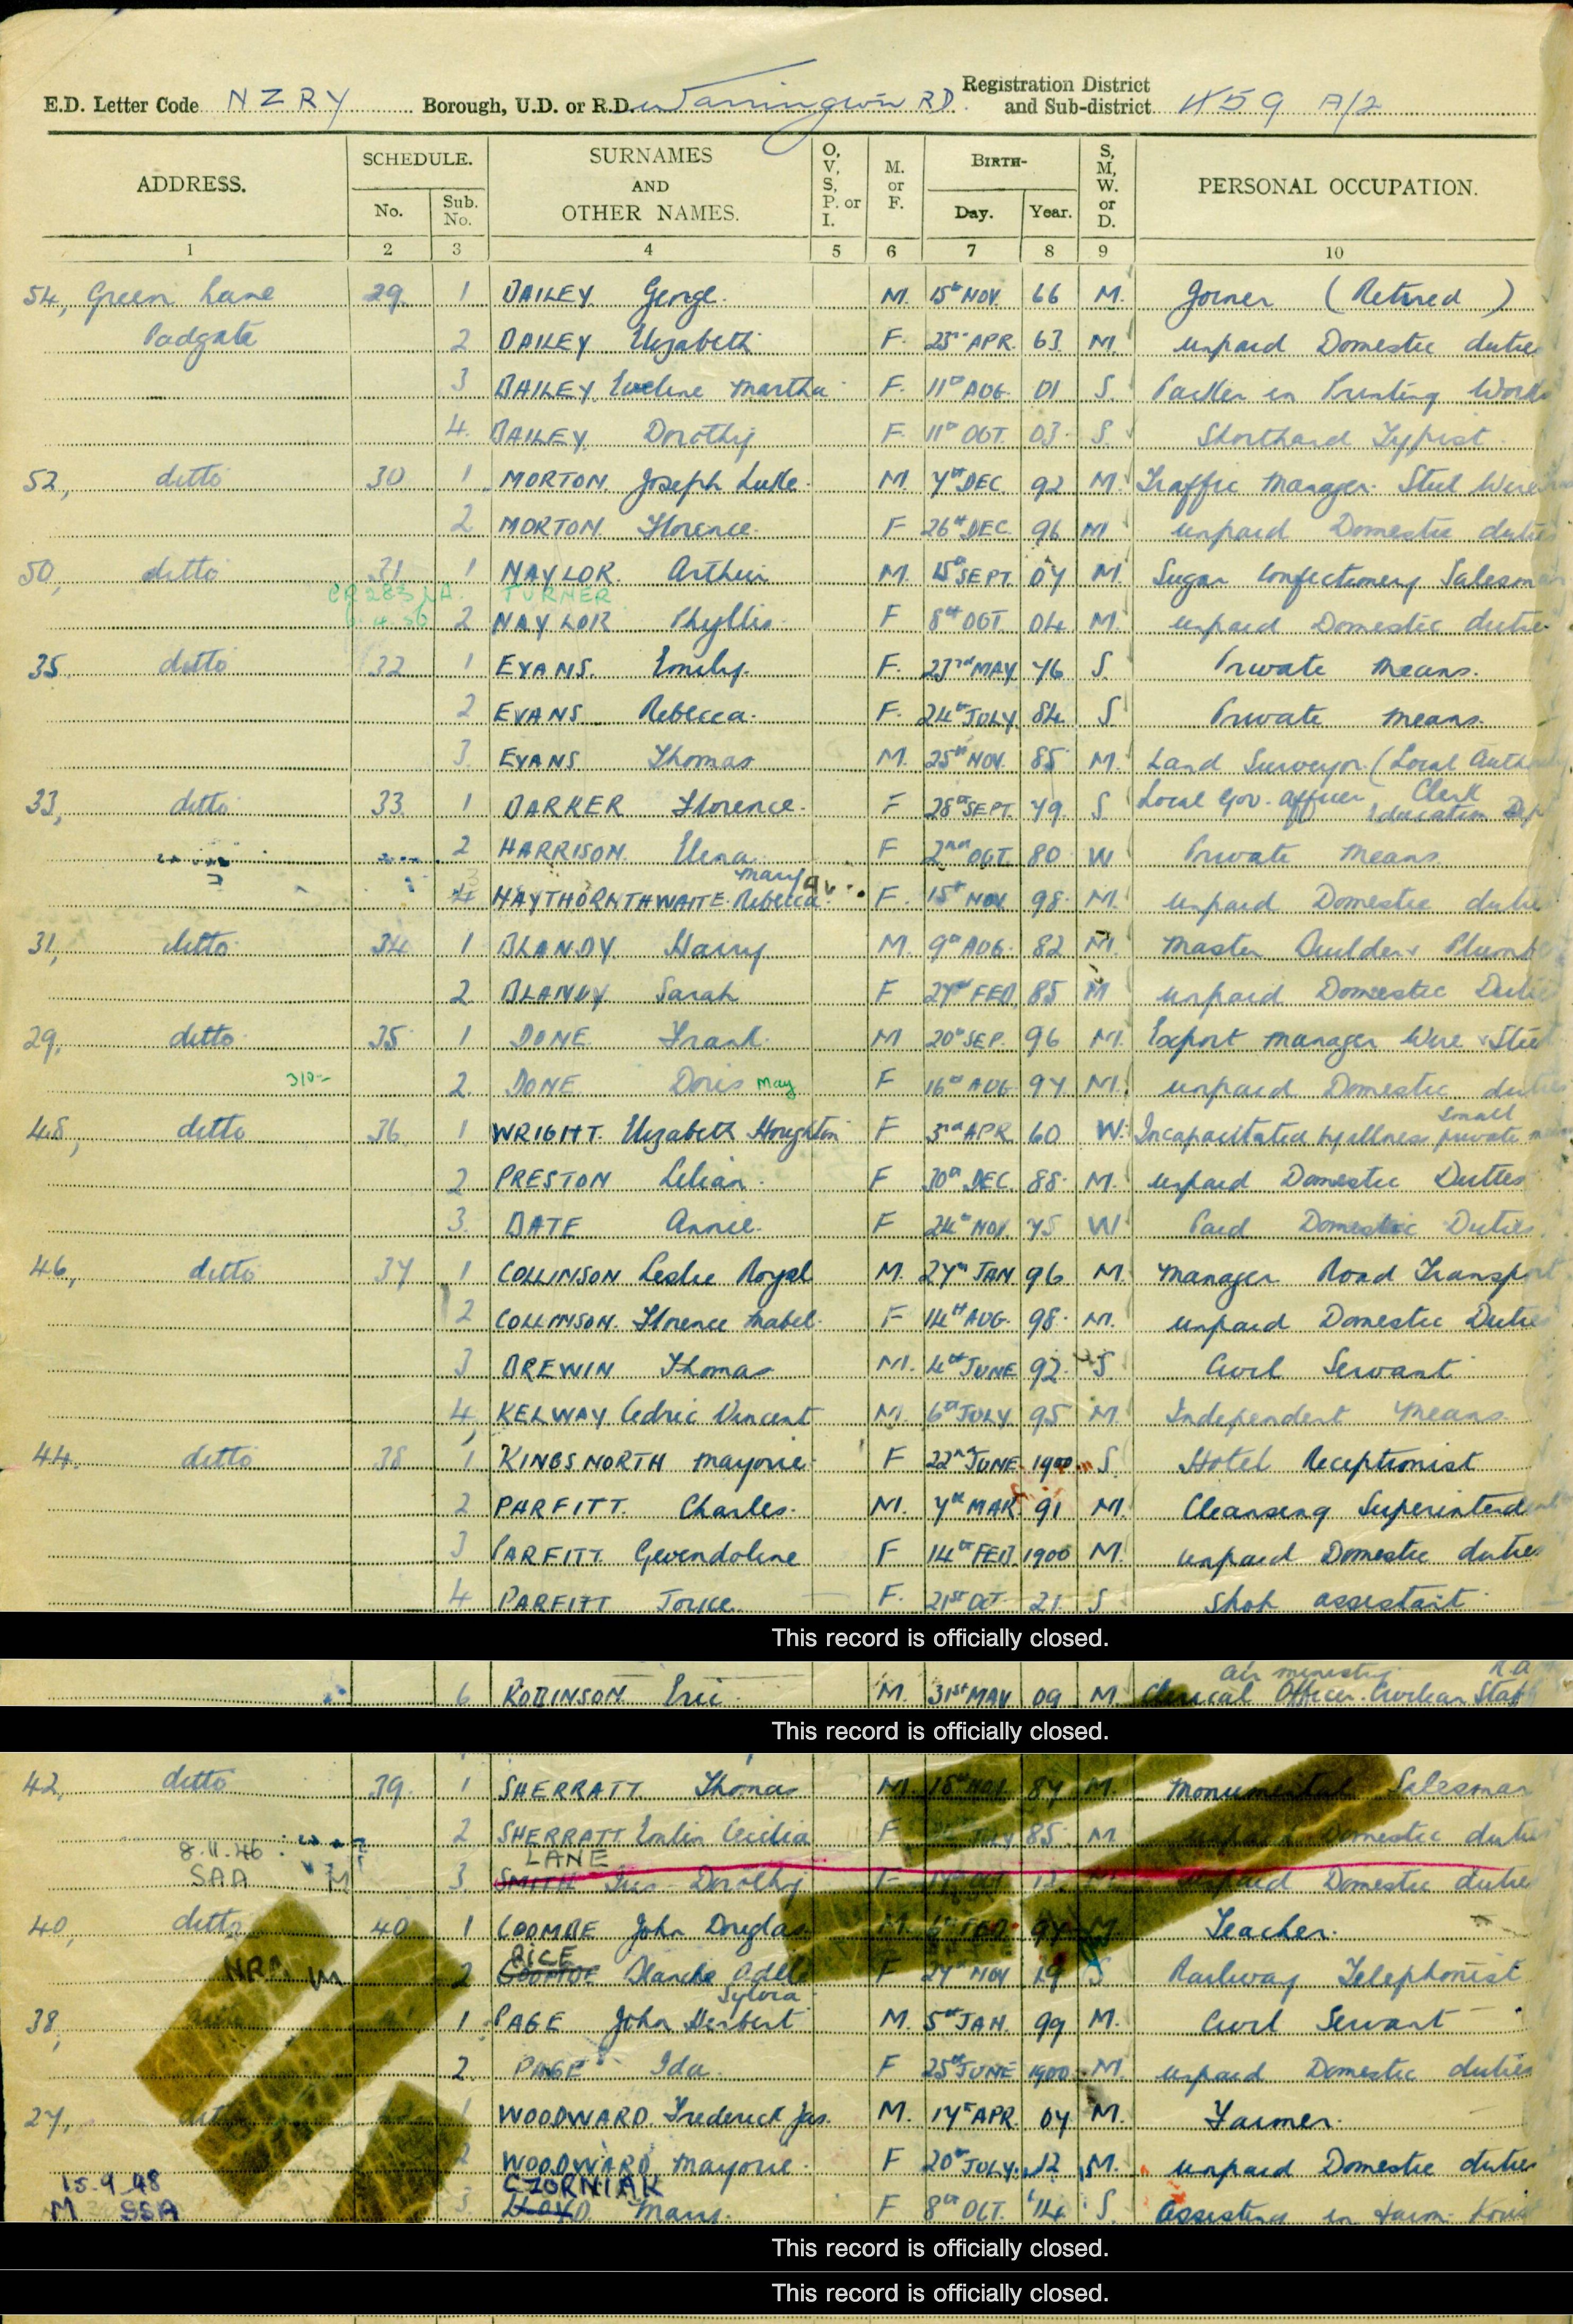 E.D. Letter Code N Z R Y Borough, U.D. or R.D. Warrington R.D. Registration District and Sub-district 459 A/2
ADDRESS. SCHEDULE. No. Sub. No. SURNAMES AND OTHER NAMES. O, V, S, P. or I. M. or F. BIRTH- Day. Year. S, M, W. or D. PERSONAL OCCUPATION.
1 2 3 4 5 6 7 8 9 10
54, Green Lane 29 1 BAILEY George M. 15th NOV. 66 M. Joiner (Retired)
Padgate 2 BAILEY Elizabeth F. 23rd APR. 63 M. unpaid Domestic duties
3 BAILEY Eveline Martha F. 11th AUG. 01 S. Packer in Printing Works
4. BAILEY Dorothy F. 11th OCT. 03 S. Shorthand Typist
52, ditto 30 1 MORTON. Joseph Luke M. 7th DEC. 92 M. Traffic Manager. Steel Wire
2 MORTON Florence F 26th DEC. 96 M. unpaid Domestic duties
50, ditto 31 1 NAYLOR. Arthur M. 15th SEPT. 07 M. Sugar Confectionery Salesman
TURNER
2 NAYLOR Phyllis F 8th OCT. 04 M. unpaid Domestic duties
35 ditto 32 1 EVANS. Emily F. 23rd MAY 76 S. Private means.
2 EVANS Rebecca F. 24th JULY 84 S Private means.
3. EVANS Thomas M. 25th NOV. 85 M. Land Surveyor (Local Auth
33, ditto 33 1 BARKER Florence F 28th SEPT. 79 S Local Gov. Officer Clerk Education Dept
2 HARRISON Elena F 2nd OCT. 80 W Private means
Mary
4 HAYTHORNTHWAITE Rebecca F. 15th NOV. 98 M. unpaid Domestic duties
31, ditto 34 1 BLANDY. Harry M. 9th AUG. 82 M. Master Builder & Plumber
2 BLANDY Sarah F 27th FEB. 85 M unpaid Domestic Duties
29, ditto 35 1 DONE Frank M 20th SEP. 96 M. Export Manager Wire & Steel
2. DONE Doris May F 16th AUG. 97 M. unpaid Domestic duties
48, ditto 36 1 WRIGHT. Elizabeth Houghton F 3rd APR. 60 W. Incapacitated by illness small private
2 PRESTON Lilian F 30th DEC. 88 M. unpaid Domestic Duties
3. BATE Annie F 24th NOV. 75 W Paid Domestic Duties
46, ditto 37 1 COLLINSON Leslie Royal M. 27th JAN 96 M. Manager Road Transport
2 COLLINSON. Florence Mabel F 14th AUG. 98 M. unpaid Domestic Duties
3 BREWIN Thomas M. 4th JUNE 92 S. Civil Servant
4, KELWAY Cedric Vincent M. 6th JULY 95 M. Independent Means.
44 ditto 38 1 KINGSNORTH Marjorie F 22nd JUNE 1900 S. Hotel Receptionist
2 PARFITT. Charles M. 7th MAR. 91 M. Cleansing Superintendent
3 PARFITT Gwendoline F 14th FEB. 1900 M. unpaid Domestic duties
4 PARFITT Joyce F. 21st OCT. 21. S Shop assistant
This record is officially closed.
6 ROBINSON Eric M. 31st MAY 09 M. Clerical Officer. Civilian Staff Air Ministry R.A
This record is officially closed.
42, ditto 39 1 SHERRATT Thomas M. 18th NOV. 87 M. Monumental Salesman
2 SHERRATT Emlin Cecilia F JULY 85 M unpaid Domestic duties
8.11.46 LANE
SAA M 3. SMITH Dorothy F M unpaid Domestic duties
40, ditto 40 1 COOMBE John Douglas M. 6th FEB. 97 M Teacher.
RICE
NRA M 2 COOMBE Blanche Odette F 27th NOV 19 S Railway Telephonist
Sylvia
38, 1 PAGE John Herbert M. 5th JAN. 99 M. Civil Servant
2. PAGE Ida F 25th JUNE 1900 M. unpaid Domestic duties
27, 1 WOODWARD. Frederick Jas. M. 17th APR. 07 M. Farmer.
2 WOODWARD Marjorie F 20th JULY. 12 M. unpaid Domestic duties
15.9.48 CZORNIAK
M SSA 3. LLOYD. Mary F 8th OCT. 14 S. Assisting in Farm House
This record is officially closed.
This record is officially closed.